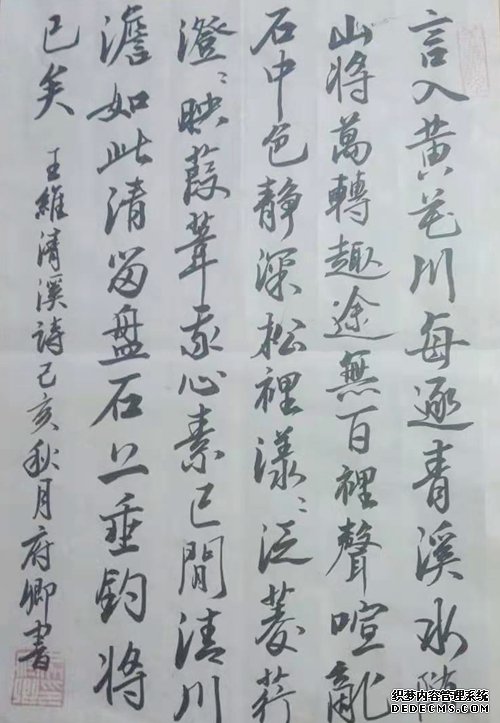 言入黄花川每逐青溪水随
山将萬轉趣途無百裡聲喧亂
石中色静深松裡漾〻泛菱荇
澄〻映葭葦我心素已閒清川
澹如此清留盤石上垂钓将
已矣 王維清溪詩己亥秋月府卿書
织梦内容管理系统
DEDECMS.COM